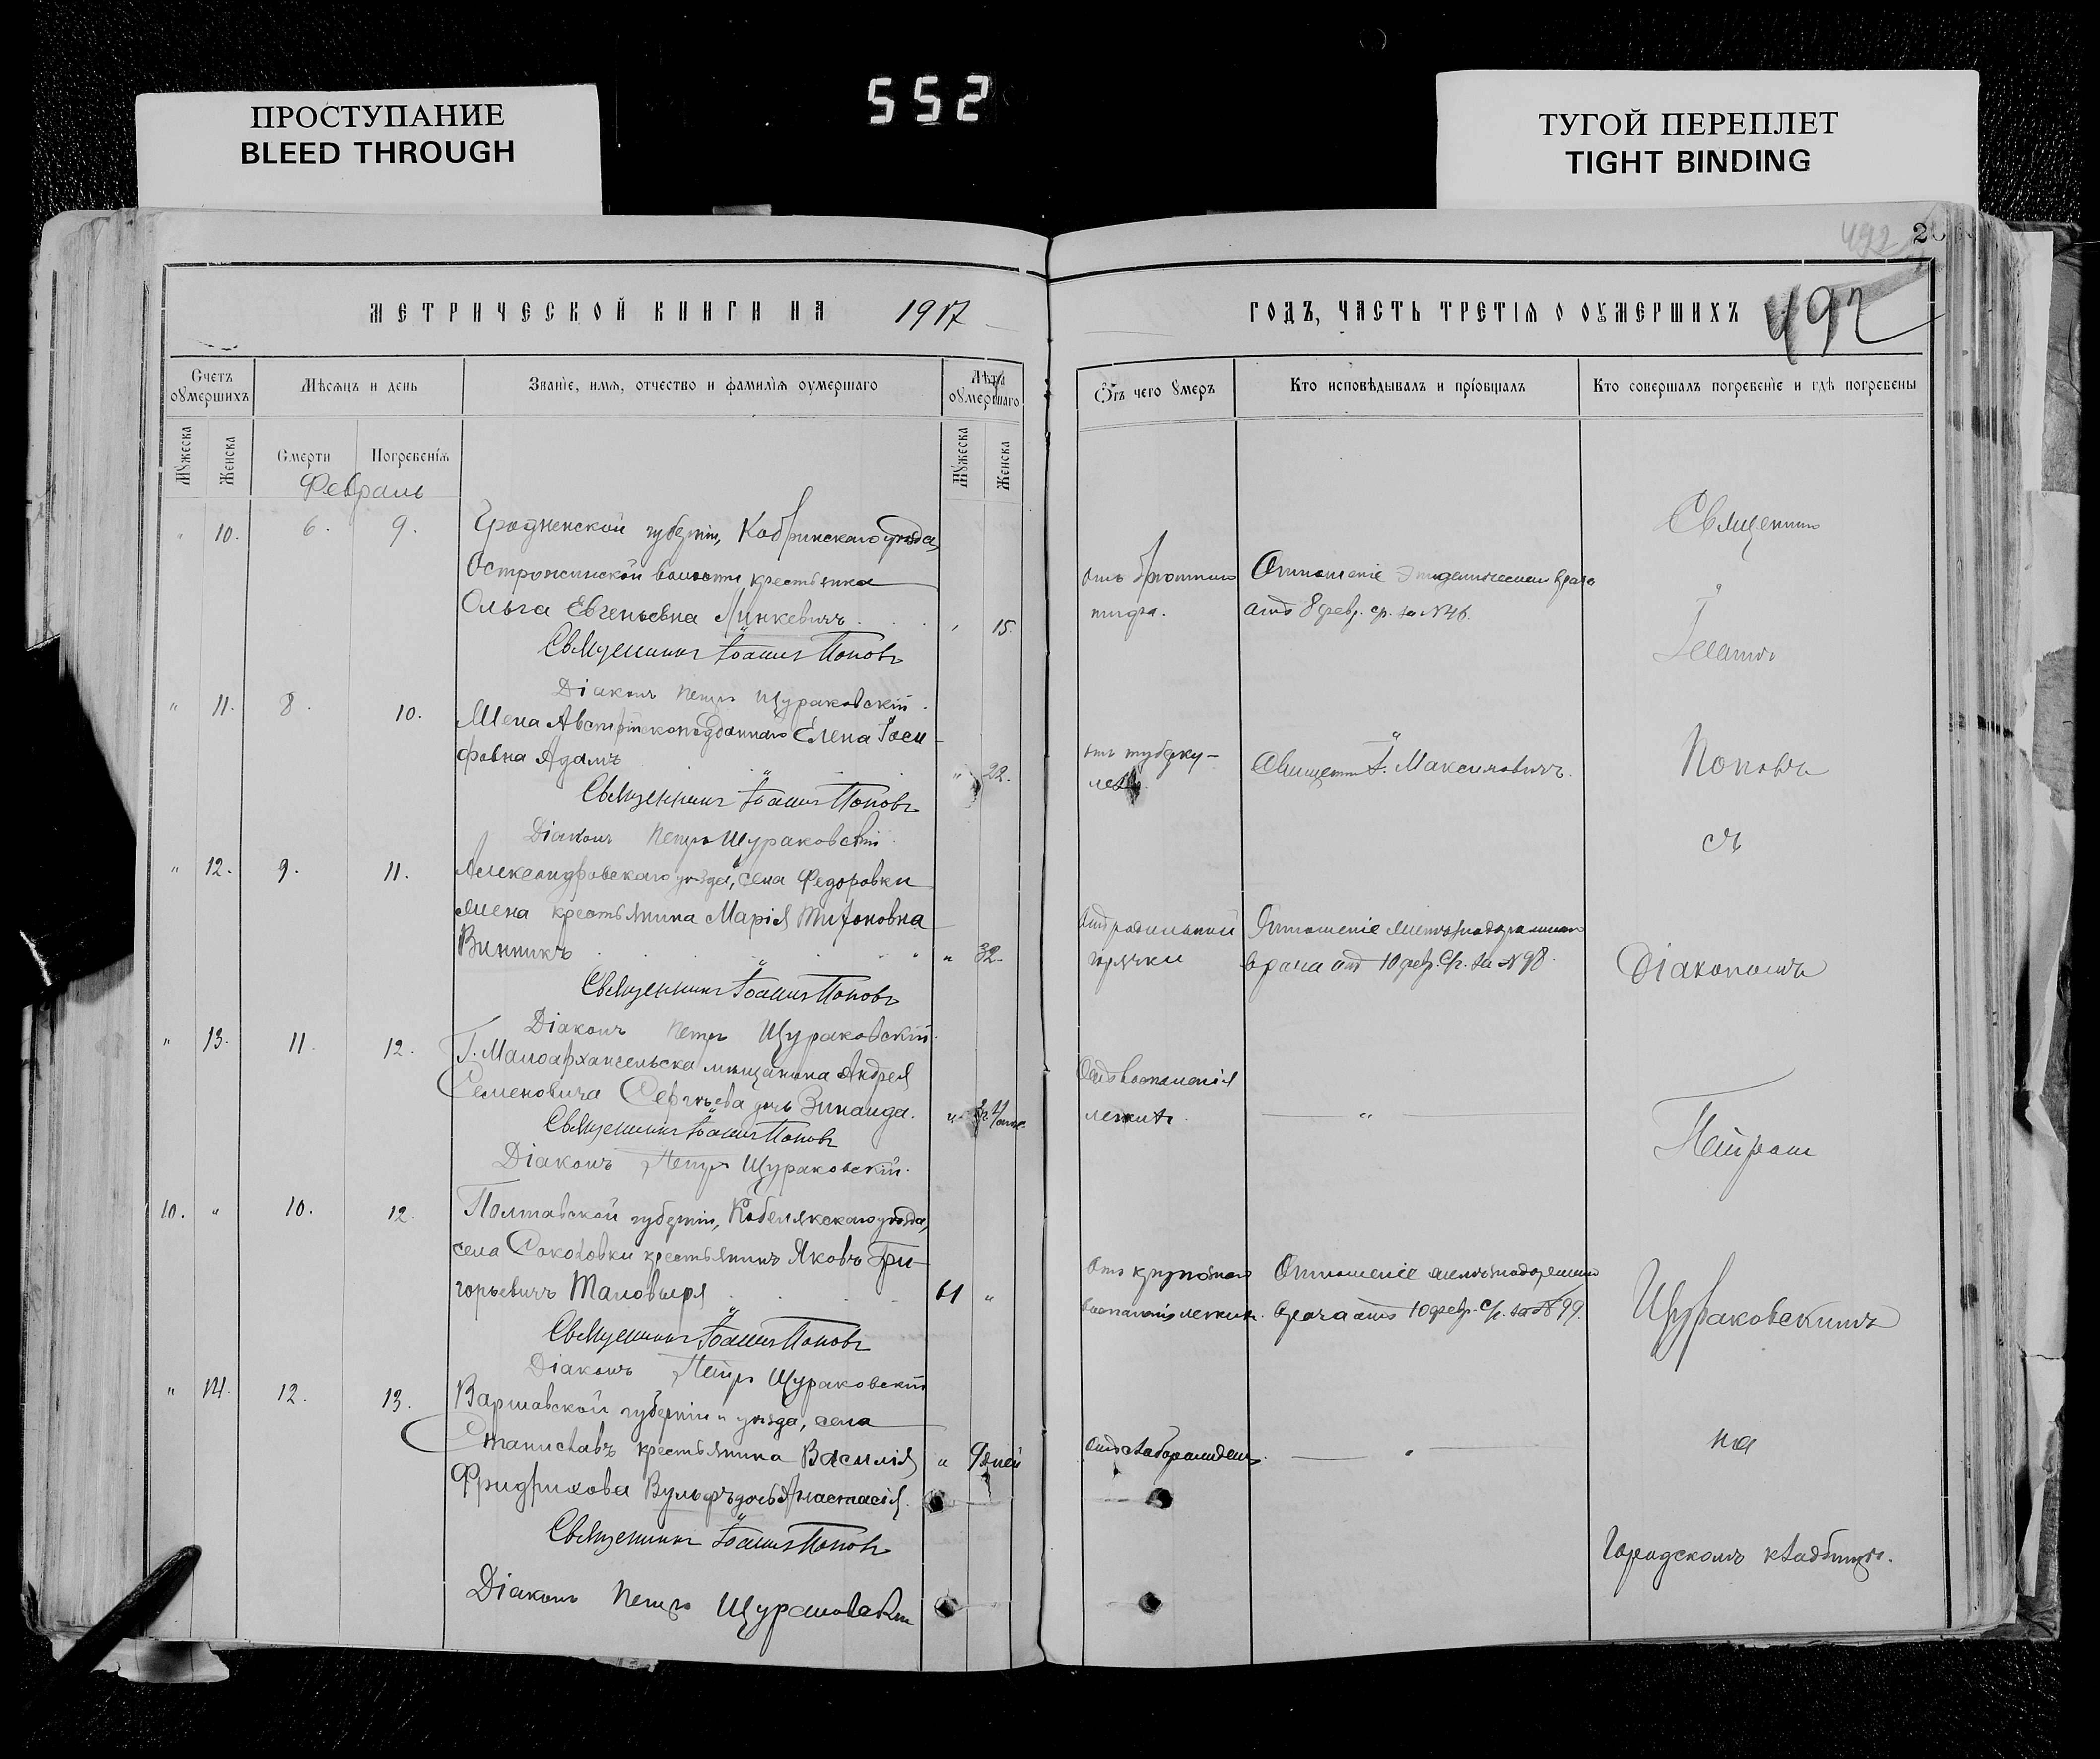 552
ПРОСТУПАНИЕ
BLEED THROUGH
ТУГОЙ ПЕРЕПЛЕТ
TIGHT BINDING
492 2
МЕТРИЧЕСКОЙ КНИГИ НА 1917
ГОДЪ, ЧАСТЬ ТРЕТІЯ О ОУМЕРШИХЪ 492
Счетъ оумершихъ
Мѣсяцъ и день
Званіе, имя, отчество и фамилія оумершаго
Лѣта оумершаго
Отъ чего умеръ
Кто исповѣдывалъ и пріобщалъ
Кто совершалъ погребеніе и гдѣ погребены
Мужеска
Женска
Смерти
Погребенія
Мужеска
Женска
Февраль
" 10. 6. 9. Гродненской губерніи, Кобринскаго уѣзда,
крестьянка
Ольга Евгеньевна Минкевичъ . . , 15.
Священникъ Іоаннъ Поповъ
Діаконъ Петръ Щураковскій.
отъ брюшного
тифа.
Отношеніе эпидемическаго врача
отъ 8 февр. с/г. за №46.
" 11. 8. 10. Жена Австрійскоподданнаго Елена Іоси-
фовна Адамъ . . . " 22.
Священникъ Іоаннъ Поповъ
Діаконъ Петръ Щураковскій
отъ туберку-
леза.
Священ. І. Максимовичъ.
" 12. 9. 11. Александровскаго уѣзда, села Федоровки
жена крестьянина Марія Тихоновна
Винникъ . . . " 32.
Священникъ Іоаннъ Поповъ
Діаконъ Петръ Щураковскій.
Отъ родильной
горячки
Отношеніе
врача отъ 10 февр. с/г. за №98.
" 13. 11. 12. Г. Малоархангельска мѣщанина Андрея
Семеновича Сергѣева дочь Зинаида. "
Священникъ Іоаннъ Поповъ
Діаконъ Петръ Щураковскій.
Отъ воспаленія
легкихъ.
— " —
10. " 10. 12. Полтавской губерніи, Кобелякскаго уѣзда,
села Соколовки крестьянинъ Яковъ Гри-
горьевичъ . . . 61 "
Священникъ Іоаннъ Поповъ
Діаконъ Петръ Щураковскій
Отъ крупознаго
воспаленія легкихъ.
Отношеніе
врача отъ 10 февр. с/г. за №99.
" 14. 12. 13. Варшавской губерніи и уѣзда, села
Станиславъ крестьянина Василія " 9 дней
Фридрихова Вульфъ дочь Анастасія.
Священникъ Іоаннъ Поповъ
Діаконъ Петръ Щураковскій
— " —
Священникъ
Іоаннъ
Поповъ
съ
Діакономъ
Петромъ
Щураковскимъ
на
Городскомъ кладбищѣ.